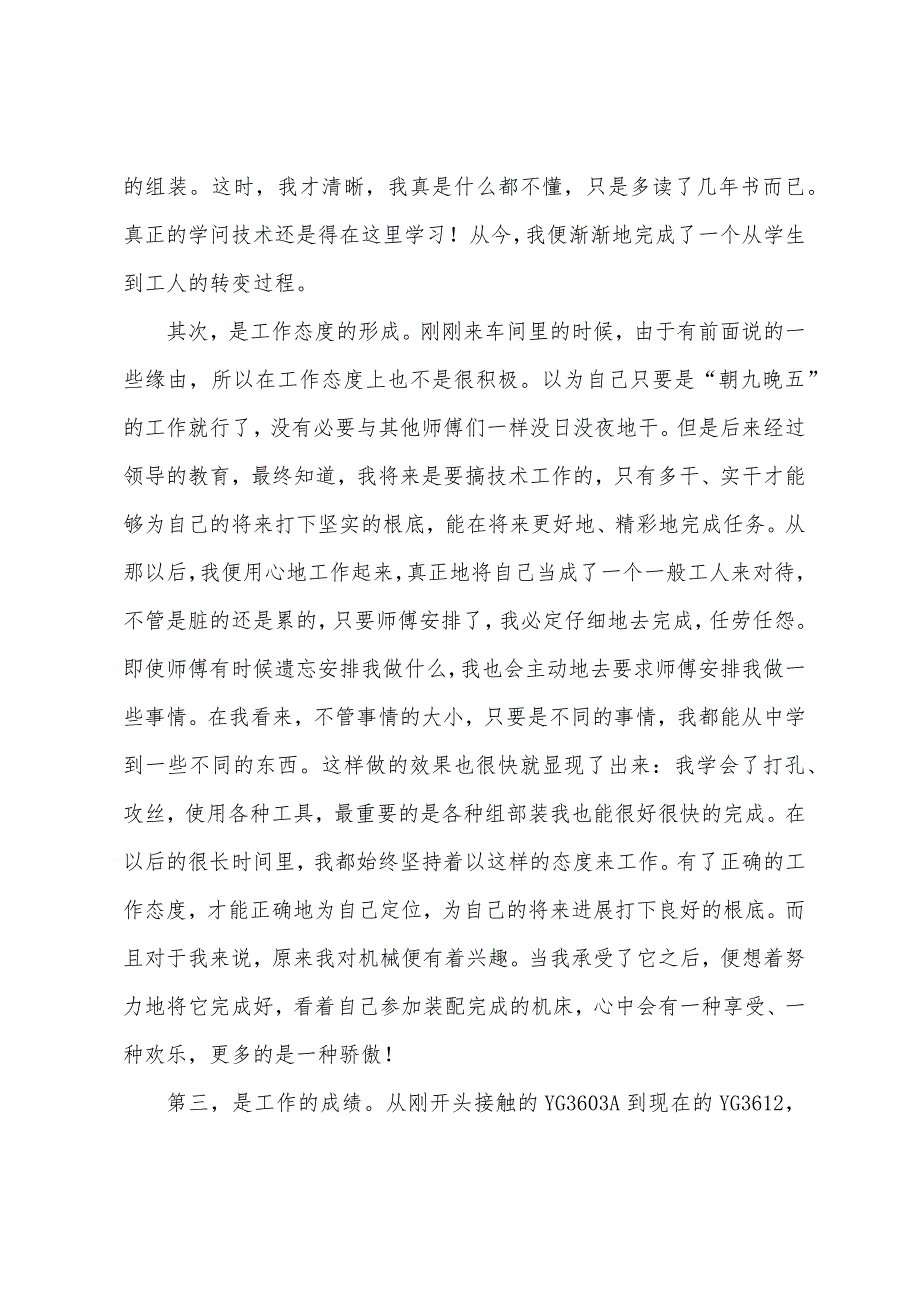 的组装。这时，我才清晰，我真是什么都不懂，只是多读了几年书而已。
真正的学问技术还是得在这里学习！从今，我便渐渐地完成了一个从学生
到工人的转变过程。
其次，是工作态度的形成。刚刚来车间里的时候，由于有前面说的一
些缘由，所以在工作态度上也不是很积极。以为自己只要是“朝九晚五”
的工作就行了，没有必要与其他师傅们一样没日没夜地干。但是后来经过
领导的教育，最终知道，我将来是要搞技术工作的，只有多干、实干才能
够为自己的将来打下坚实的根底，能在将来更好地、精彩地完成任务。从
那以后，我便用心地工作起来，真正地将自己当成了一个一般工人来对待，
不管是脏的还是累的，只要师傅安排了，我必定仔细地去完成，任劳任怨。
即使师傅有时候遗忘安排我做什么，我也会主动地去要求师傅安排我做一
些事情。在我看来，不管事情的大小，只要是不同的事情，我都能从中学
到一些不同的东西。这样做的效果也很快就显现了出来：我学会了打孔、
攻丝，使用各种工具，最重要的是各种组部装我也能很好很快的完成。在
以后的很长时间里，我都始终坚持着以这样的态度来工作。有了正确的工
作态度，才能正确地为自己定位，为自己的将来进展打下良好的根底。而
且对于我来说，原来我对机械便有着兴趣。当我承受了它之后，便想着努
力地将它完成好，看着自己参加装配完成的机床，心中会有一种享受、一
种欢乐，更多的是一种骄傲！
第三，是工作的成绩。从刚开头接触的 YG3603A 到现在的 YG3612，